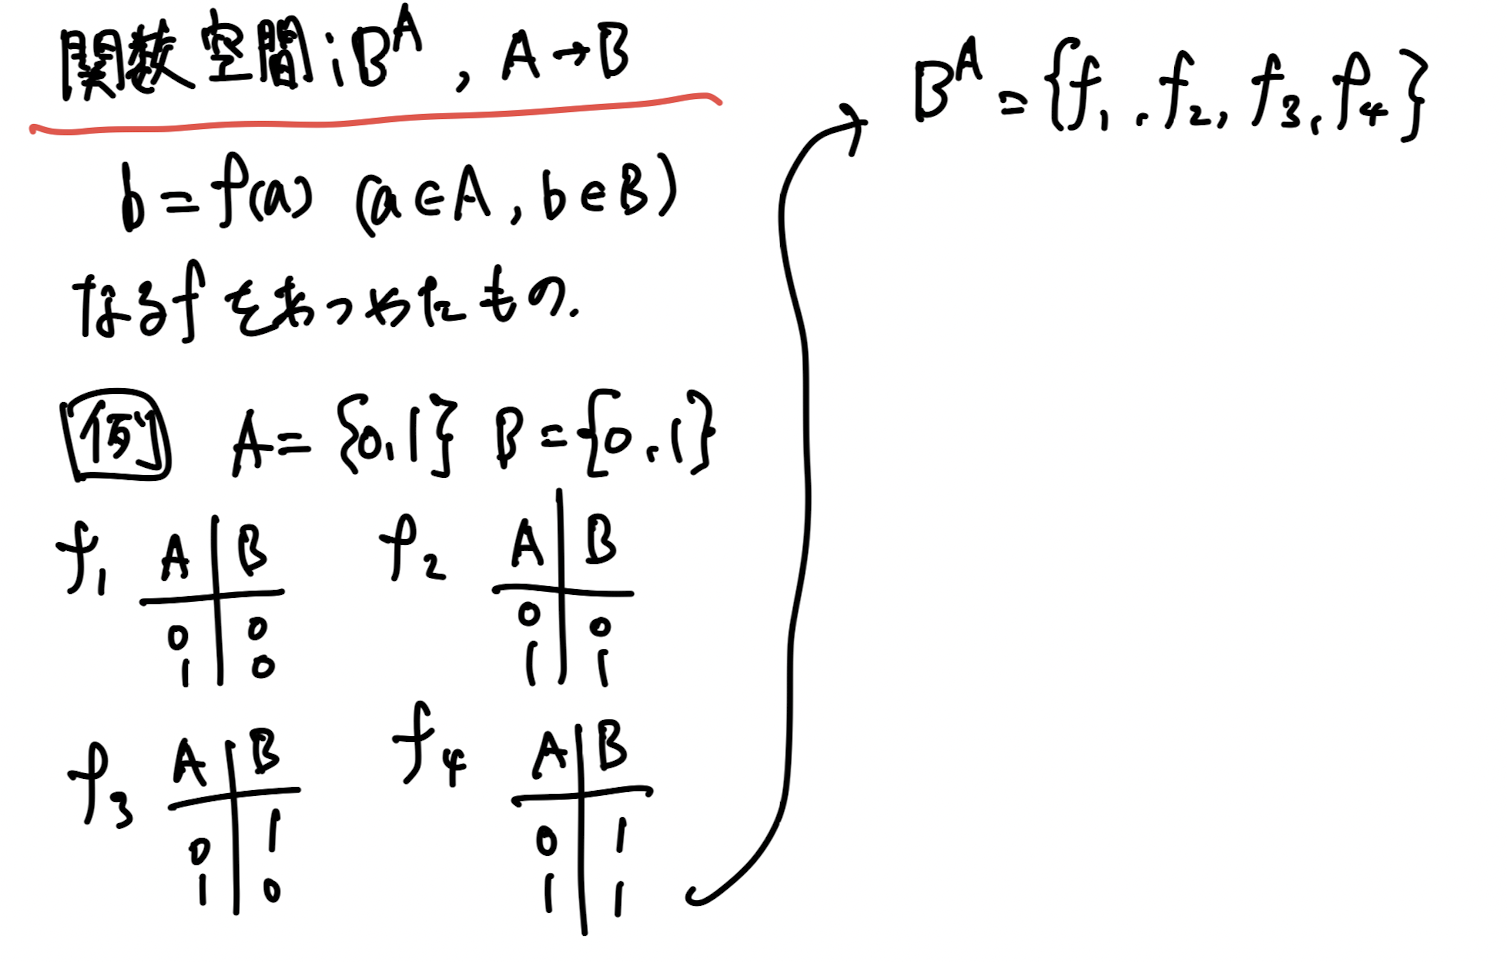 関数空間；B^A , A→B
b = f(a) (a∈A, b∈B)
なるfをあつめたもの.
例 A = {0,1} B = {0,1}
f₁ A | B
0 | 0
1 | 0
f₂ A | B
0 | 0
1 | 1
f₃ A | B
0 | 1
1 | 0
f₄ A | B
0 | 1
1 | 1
B^A = {f₁, f₂, f₃, f₄}